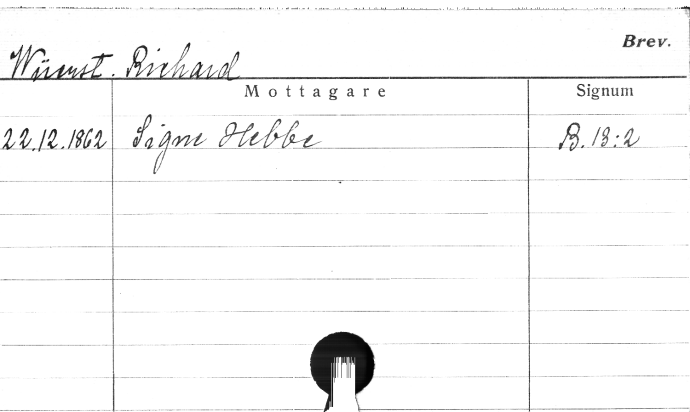 Brev.
Wüerst. Richard
Mottagare Signum
22.12.1862 Signe Hebbe B.13:2